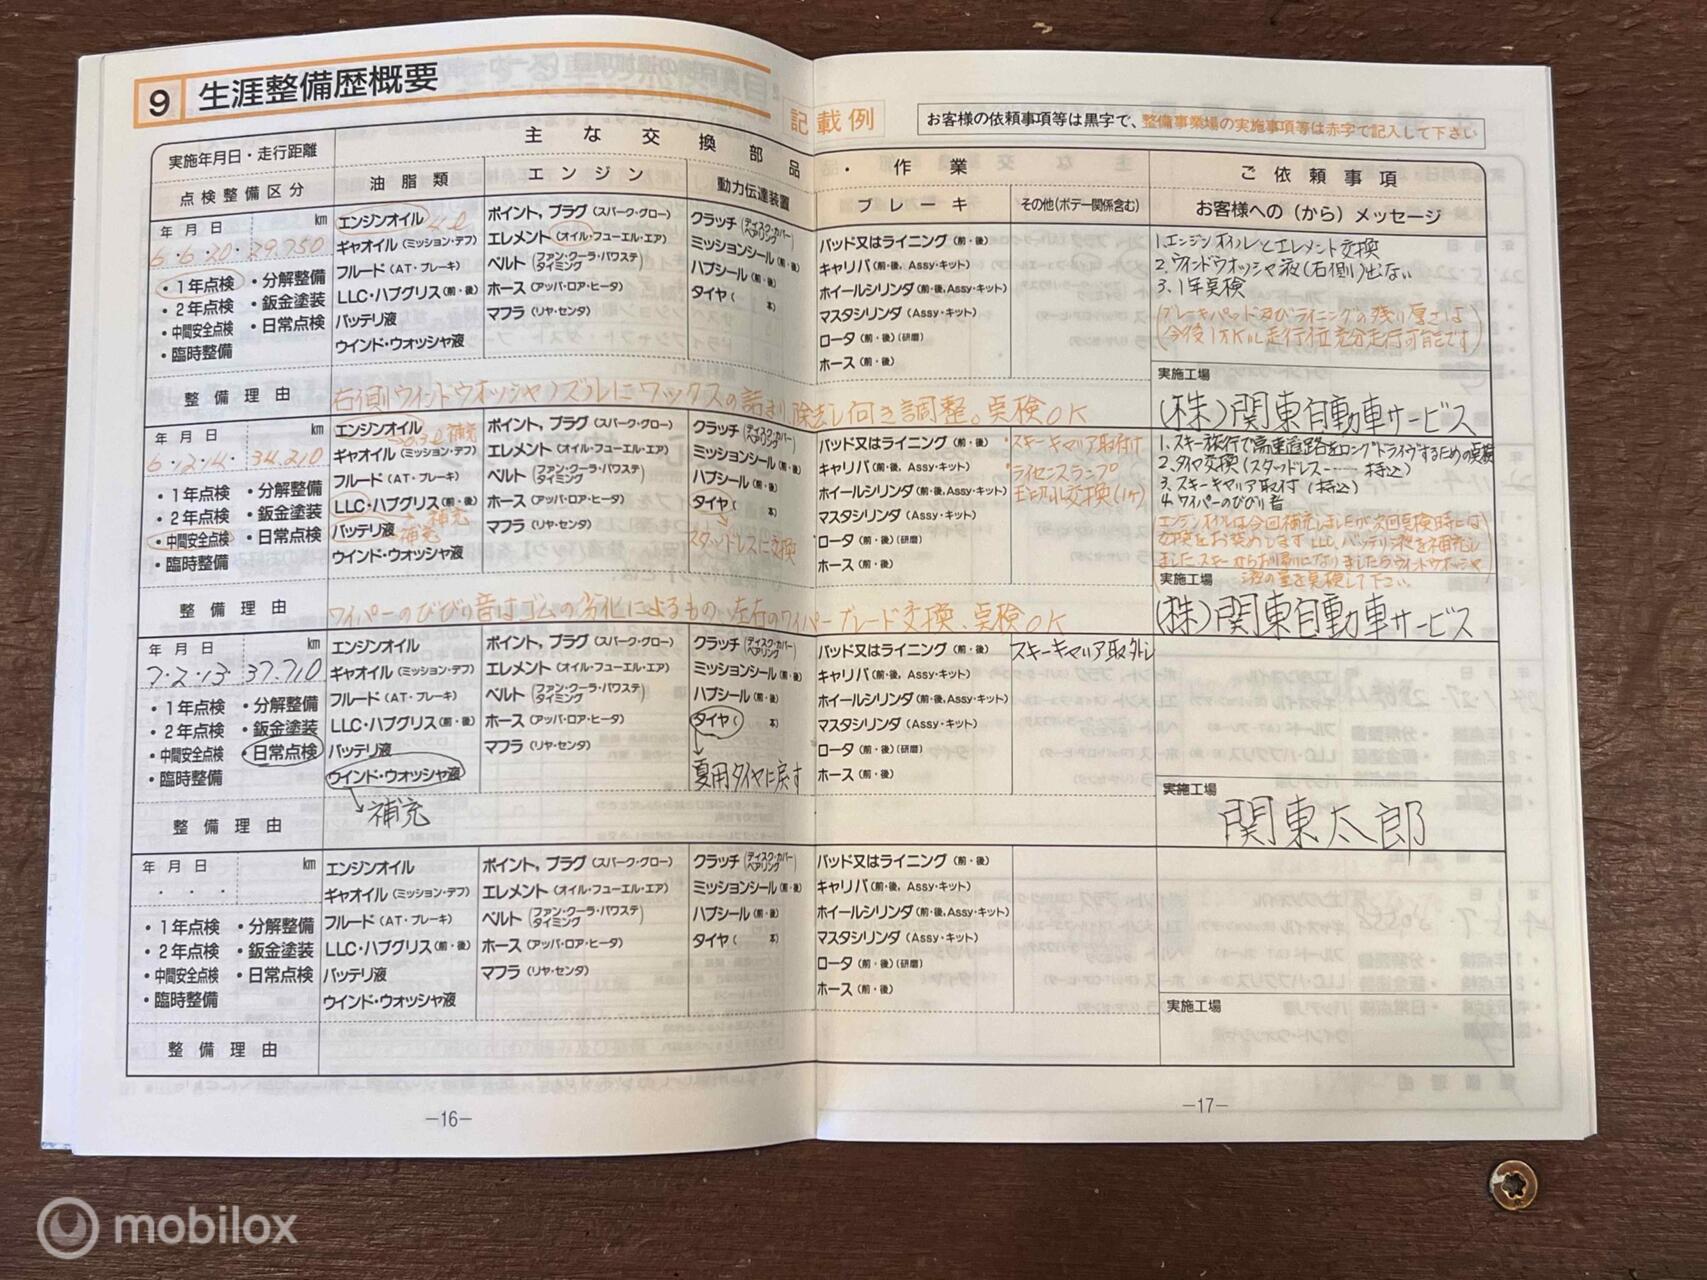 9 生涯整備歴概要
記載例
お客様の依頼事項等は黒字で、整備事業場の実施事項等は赤字で記入して下さい
実施年月日・走行距離
点検整備区分
主な交換部品・作業
油脂類
エンジン
動力伝達装置
ブレーキ
その他(ボデー関係含む)
ご依頼事項
お客様への(から)メッセージ
年月日 km
6・6・20・29.750
・1年点検 ・分解整備
・2年点検 ・鈑金塗装
・中間安全点検 ・日常点検
・臨時整備
エンジンオイル 4ℓ
ギヤオイル(ミッション・デフ)
フルード(AT・ブレーキ)
LLC・ハブグリス(前・後)
バッテリ液
ウインド・ウォッシャ液
ポイント,プラグ(スパーク・グロー)
エレメント(オイル・フューエル・エア)
ベルト(ファン・クーラ・パワステ タイミング)
ホース(アッパ・ロア・ヒータ)
マフラ(リヤ・センタ)
クラッチ(ディスク・カバー ベアリング)
ミッションシール(前・後)
ハブシール(前・後)
タイヤ( 本)
パッド又はライニング(前・後)
キャリパ(前・後, Assy・キット)
ホイールシリンダ(前・後,Assy・キット)
マスタシリンダ(Assy・キット)
ロータ(前・後)(研磨)
ホース(前・後)
1.エンジンオイルとエレメント交換
2.ウインドウオッシャ液(右側)出ない
3.1年点検
(ブレーキパッド及びライニングの残り厚さは
今後1万K/L走行位充分走行可能です)
実施工場
(株)関東自動車サービス
整備理由
右側ウインドウオッシャノズルにワックスの詰まり除去し向き調整。点検OK
年月日 km
6・12・14・34.210
・1年点検 ・分解整備
・2年点検 ・鈑金塗装
・中間安全点検 ・日常点検
・臨時整備
エンジンオイル
0.3ℓ補充
ギヤオイル(ミッション・デフ)
フルード(AT・ブレーキ)
LLC・ハブグリス(前・後)
補充
バッテリ液
補充
ウインド・ウォッシャ液
ポイント,プラグ(スパーク・グロー)
エレメント(オイル・フューエル・エア)
ベルト(ファン・クーラ・パワステ タイミング)
ホース(アッパ・ロア・ヒータ)
マフラ(リヤ・センタ)
クラッチ(ディスク・カバー ベアリング)
ミッションシール(前・後)
ハブシール(前・後)
タイヤ( 本)
スタッドレスに交換
パッド又はライニング(前・後)
キャリパ(前・後, Assy・キット)
ホイールシリンダ(前・後,Assy・キット)
マスタシリンダ(Assy・キット)
ロータ(前・後)(研磨)
ホース(前・後)
・スキーキャリア取付け
・ライセンスランプ
玉切れ交換(1ヶ)
1.スキー旅行で高速道路をロングドライブするための点検
2.タイヤ交換(スタッドレス……持込)
3.スキーキャリア取付(持込)
4.ワイパーのびびり音
エンジンオイルは今回補充しましたが次回点検時には
交換をお奨めします LLC、バッテリ液を補充し
ました スキーからお帰りになりましたらウインドウオッシャ
液の量を点検して下さい。
実施工場
(株)関東自動車サービス
整備理由
ワイパーのびびり音はゴムの劣化によるもの、左右のワイパーブレード交換、点検OK
年月日 km
7・2・13・37.710
・1年点検 ・分解整備
・2年点検 ・鈑金塗装
・中間安全点検 日常点検
・臨時整備
エンジンオイル
ギヤオイル(ミッション・デフ)
フルード(AT・ブレーキ)
LLC・ハブグリス(前・後)
バッテリ液
ウインド・ウォッシャ液
補充
ポイント,プラグ(スパーク・グロー)
エレメント(オイル・フューエル・エア)
ベルト(ファン・クーラ・パワステ タイミング)
ホース(アッパ・ロア・ヒータ)
マフラ(リヤ・センタ)
クラッチ(ディスク・カバー ベアリング)
ミッションシール(前・後)
ハブシール(前・後)
タイヤ( 本)
夏用タイヤに戻す
パッド又はライニング(前・後)
キャリパ(前・後, Assy・キット)
ホイールシリンダ(前・後,Assy・キット)
マスタシリンダ(Assy・キット)
ロータ(前・後)(研磨)
ホース(前・後)
スキーキャリア取外し
実施工場
関東太郎
整備理由
年月日 km
・ ・ ・
・1年点検 ・分解整備
・2年点検 ・鈑金塗装
・中間安全点検 ・日常点検
・臨時整備
エンジンオイル
ギヤオイル(ミッション・デフ)
フルード(AT・ブレーキ)
LLC・ハブグリス(前・後)
バッテリ液
ウインド・ウォッシャ液
ポイント,プラグ(スパーク・グロー)
エレメント(オイル・フューエル・エア)
ベルト(ファン・クーラ・パワステ タイミング)
ホース(アッパ・ロア・ヒータ)
マフラ(リヤ・センタ)
クラッチ(ディスク・カバー ベアリング)
ミッションシール(前・後)
ハブシール(前・後)
タイヤ( 本)
パッド又はライニング(前・後)
キャリパ(前・後, Assy・キット)
ホイールシリンダ(前・後,Assy・キット)
マスタシリンダ(Assy・キット)
ロータ(前・後)(研磨)
ホース(前・後)
実施工場
整備理由
—16—
—17—
mobilox